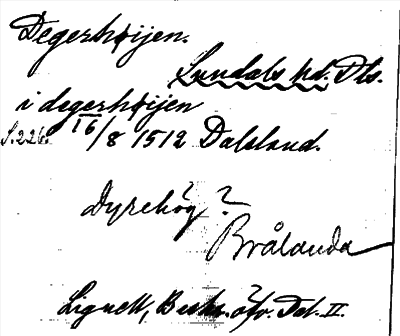 Degerhøijen.
Sundals hd. Dls.
i degerhøijen
S. 226. 16/8 1512 Dalsland.
Dyrehög?
Brålanda
Lignell, Beskr. öfv. Dal. II.